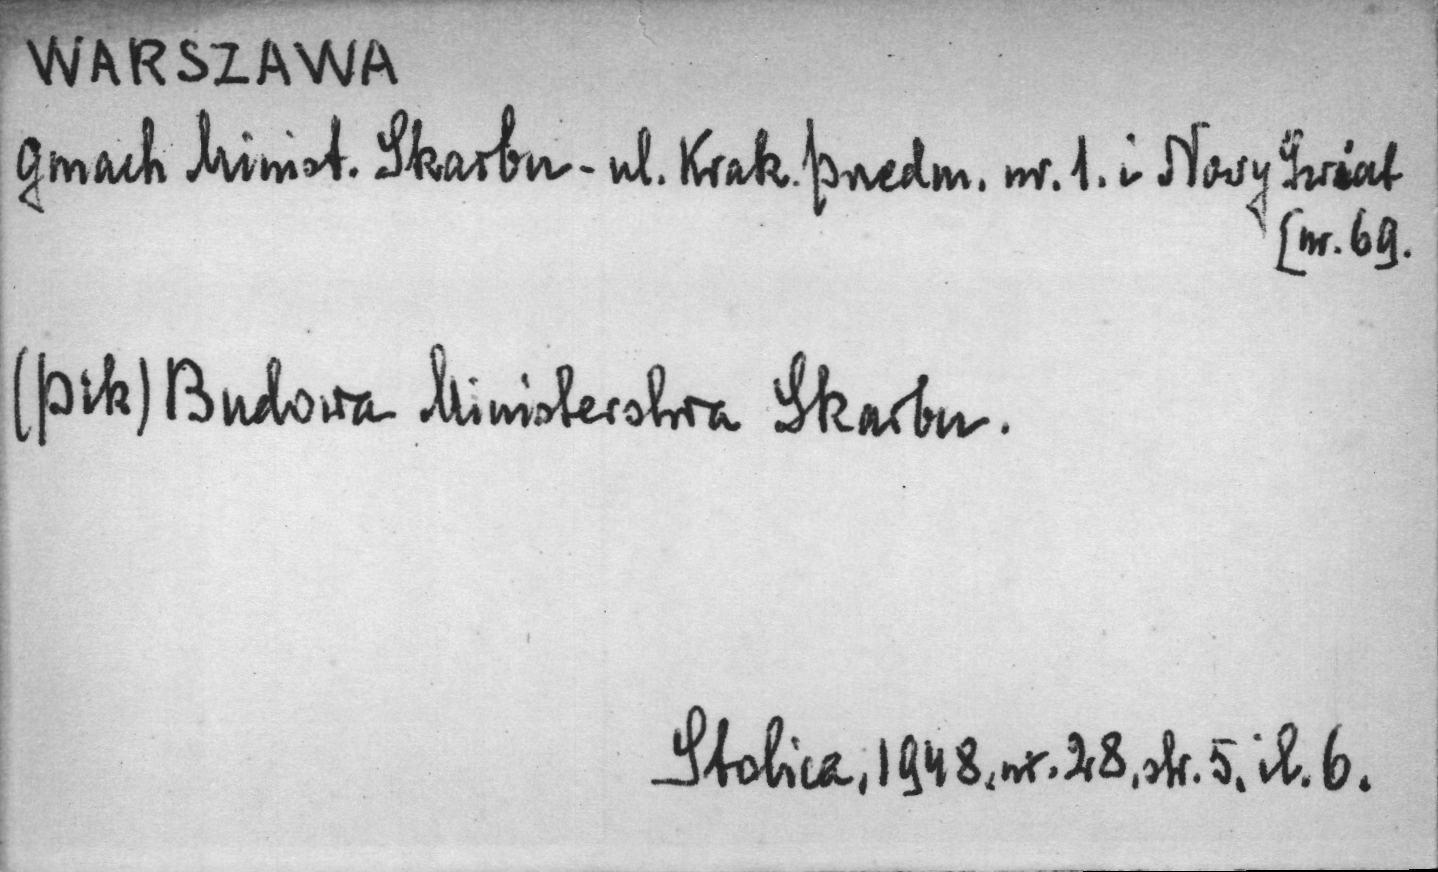 WARSZAWA
gmach Minist. Skarbu - ul. Krak. przedm. nr. 1. i Nowy Świat
[nr. 69.
(pik) Budowa Ministerstwa Skarbu.
Stolica, 1948, nr. 28, str. 5, il. 6.